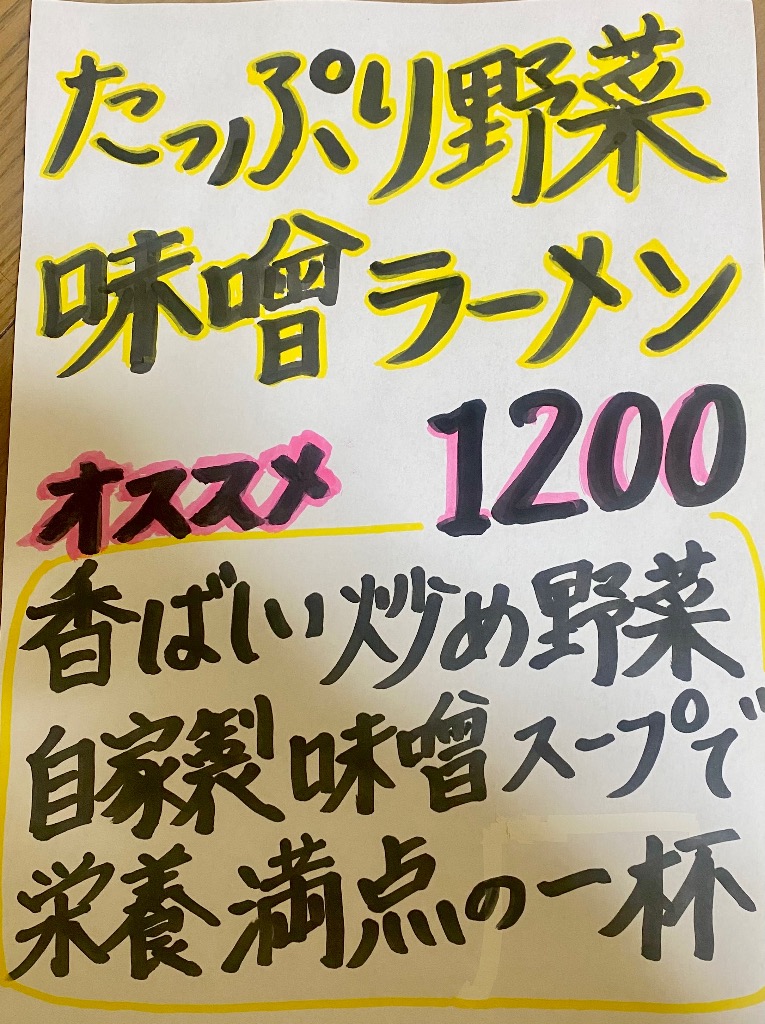 たっぷり野菜
味噌ラーメン
オススメ 1200
香ばしい炒め野菜
自家製味噌スープで
栄養満点の一杯